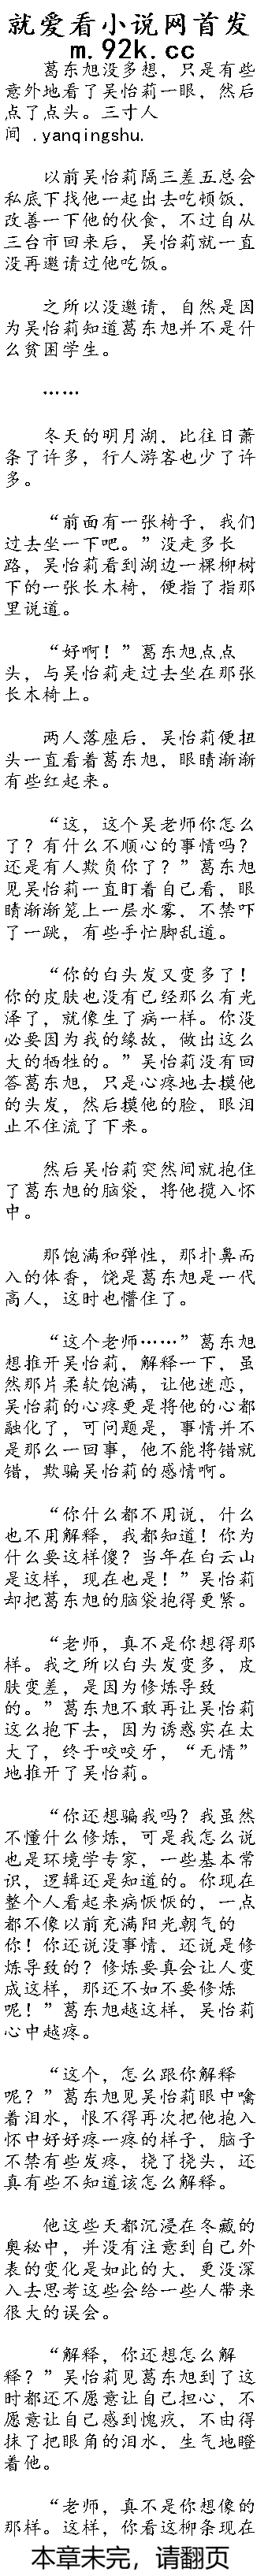 就爱看小说网首发
m.92k.cc
　　葛东旭没多想，只是有些
意外地看了吴怡莉一眼，然后
点了点头。三寸人
间 .yanqingshu.
　　以前吴怡莉隔三差五总会
私底下找他一起出去吃顿饭，
改善一下他的伙食，不过自从
三台市回来后，吴怡莉就一直
没再邀请过他吃饭。
　　之所以没邀请，自然是因
为吴怡莉知道葛东旭并不是什
么贫困学生。
　　……
　　冬天的明月湖，比往日萧
条了许多，行人游客也少了许
多。
　　“前面有一张椅子，我们
过去坐一下吧。”没走多长
路，吴怡莉看到湖边一棵柳树
下的一张长木椅，便指了指那
里说道。
　　“好啊！”葛东旭点点
头，与吴怡莉走过去坐在那张
长木椅上。
　　两人落座后，吴怡莉便扭
头一直看着葛东旭，眼睛渐渐
有些红起来。
　　“这，这个吴老师你怎么
了？有什么不顺心的事情吗？
还是有人欺负你了？”葛东旭
见吴怡莉一直盯着自己看，眼
睛渐渐笼上一层水雾，不禁吓
了一跳，有些手忙脚乱道。
　　“你的白头发又变多了！
你的皮肤也没有已经那么有光
泽了，就像生了病一样。你没
必要因为我的缘故，做出这么
大的牺牲的。”吴怡莉没有回
答葛东旭，只是心疼地去摸他
的头发，然后摸他的脸，眼泪
止不住流了下来。
　　然后吴怡莉突然间就抱住
了葛东旭的脑袋，将他揽入怀
中。
　　那饱满和弹性，那扑鼻而
入的体香，饶是葛东旭是一代
高人，这时也懵住了。
　　“这个老师……”葛东旭
想推开吴怡莉，解释一下，虽
然那片柔软饱满，让他迷恋，
吴怡莉的心疼更是将他的心都
融化了，可问题是，事情并不
是那么一回事，他不能将错就
错，欺骗吴怡莉的感情啊。
　　“你什么都不用说，什么
也不用解释，我都知道！你为
什么要这样傻？当年在白云山
是这样，现在也是！”吴怡莉
却把葛东旭的脑袋抱得更紧。
　　“老师，真不是你想得那
样。我之所以白头发变多，皮
肤变差，是因为修炼导致
的。”葛东旭不敢再让吴怡莉
这么抱下去，因为诱惑实在太
大了，终于咬咬牙，“无情”
地推开了吴怡莉。
　　“你还想骗我吗？我虽然
不懂什么修炼，可是我怎么说
也是环境学专家，一些基本常
识，逻辑还是知道的。你现在
整个人看起来病恹恹的，一点
都不像以前充满阳光朝气的
你！你还说没事情，还说是修
炼导致的？修炼要真会让人变
成这样，那还不如不要修炼
呢！”葛东旭越这样，吴怡莉
心中越疼。
　　“这个，怎么跟你解释
呢？”葛东旭见吴怡莉眼中噙
着泪水，恨不得再次把他抱入
怀中好好疼一疼的样子，脑子
不禁有些发疼，挠了挠头，还
真有些不知道该怎么解释。
　　他这些天都沉浸在冬藏的
奥秘中，并没有注意到自己外
表的变化是如此的大，更没深
入去思考这些会给一些人带来
很大的误会。
　　“解释，你还想怎么解
释？”吴怡莉见葛东旭到了这
时都还不愿意让自己担心，不
愿意让自己感到愧疚，不由得
抹了把眼角的泪水，生气地瞪
着他。
　　“老师，真不是你想像的
那样。这样，你看这柳条现在
本章未完，请翻页